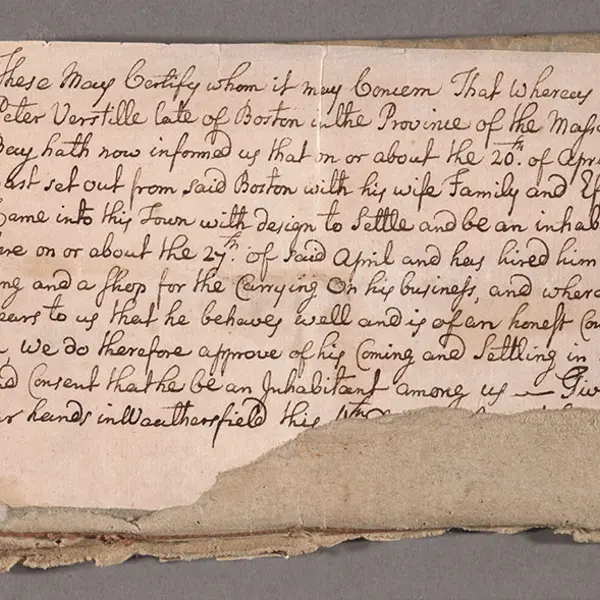 These May Certify whom it may Concern That Whereas
Peter Verstille late of Boston in the Province of the Massa
Bay hath now informed us that on or about the 20th. of Apri
last set out from said Boston with his wife Family and Ef
Came into this Town with design to Settle and be an inhab
ere on or about the 27th. of said April and has hired him
ng and a Shop for the Carrying On his business, and wherea
ears to us that he behaves well and is of an honest Co
we do therefore approve of his Coming and Settling in
nd Consent that he be an Inhabitant among us — Giv
ur hands in Weathersfield this